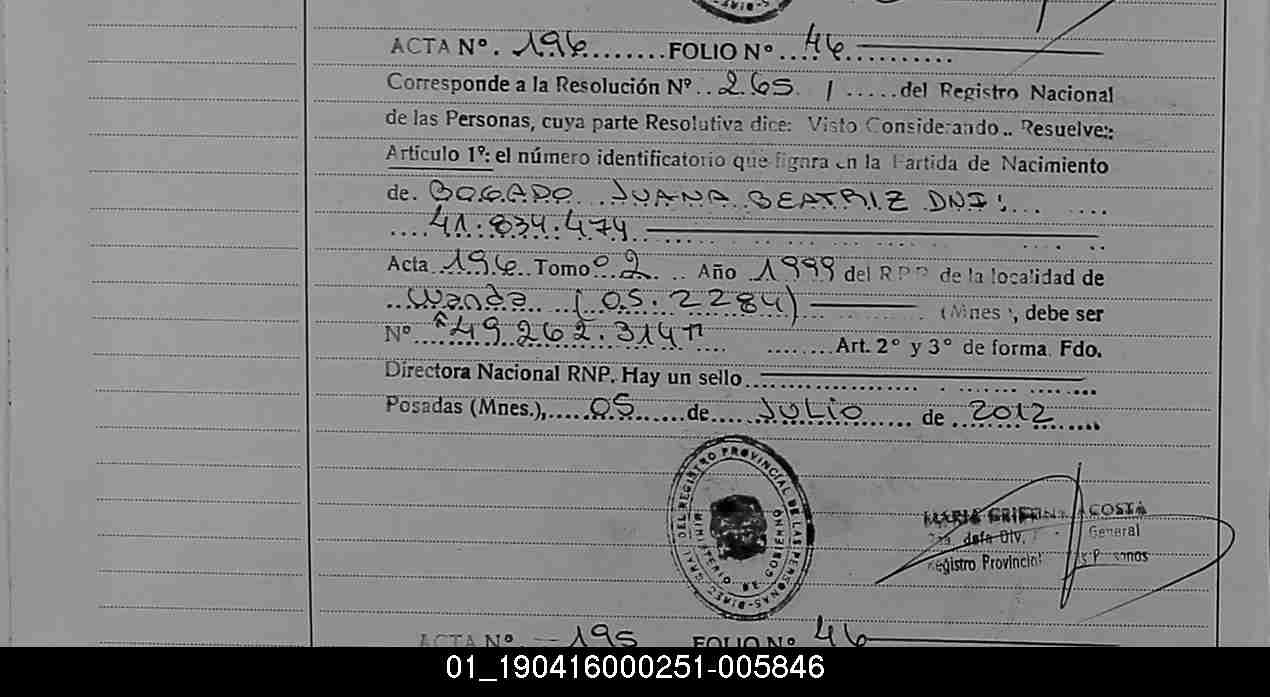 ACTA Nº. 196........FOLIO Nº ....46...........
Corresponde a la Resolución Nº ..265. / .....del Registro Nacional
de las Personas, cuya parte Resolutiva dice: Visto Considerando.. Resuelve:
Artículo 1º: el número identificatorio que figura en la Partida de Nacimiento
de. BOGADO JUANA BEATRIZ DNI:
....41.834.474
Acta 196 Tomo º 2 .. Año 1999 del RPP de la localidad de
Wanda (OS. 2284) (Mnes ), debe ser
Nº "49.262.314" ........Art. 2º y 3º de forma. Fdo.
Directora Nacional RNP. Hay un sello
Posadas (Mnes.),.....05......de.... JULIO de 2012
DIREC. GRAL. DEL REGISTRO PROVINCIAL DE LAS PERSONAS
MINISTERIO DE GOBIERNO
ACOSTA
Jefa Div. General
Registro Provincial
ACTA Nº 195 FOLIO Nº 46
01_190416000251-005846